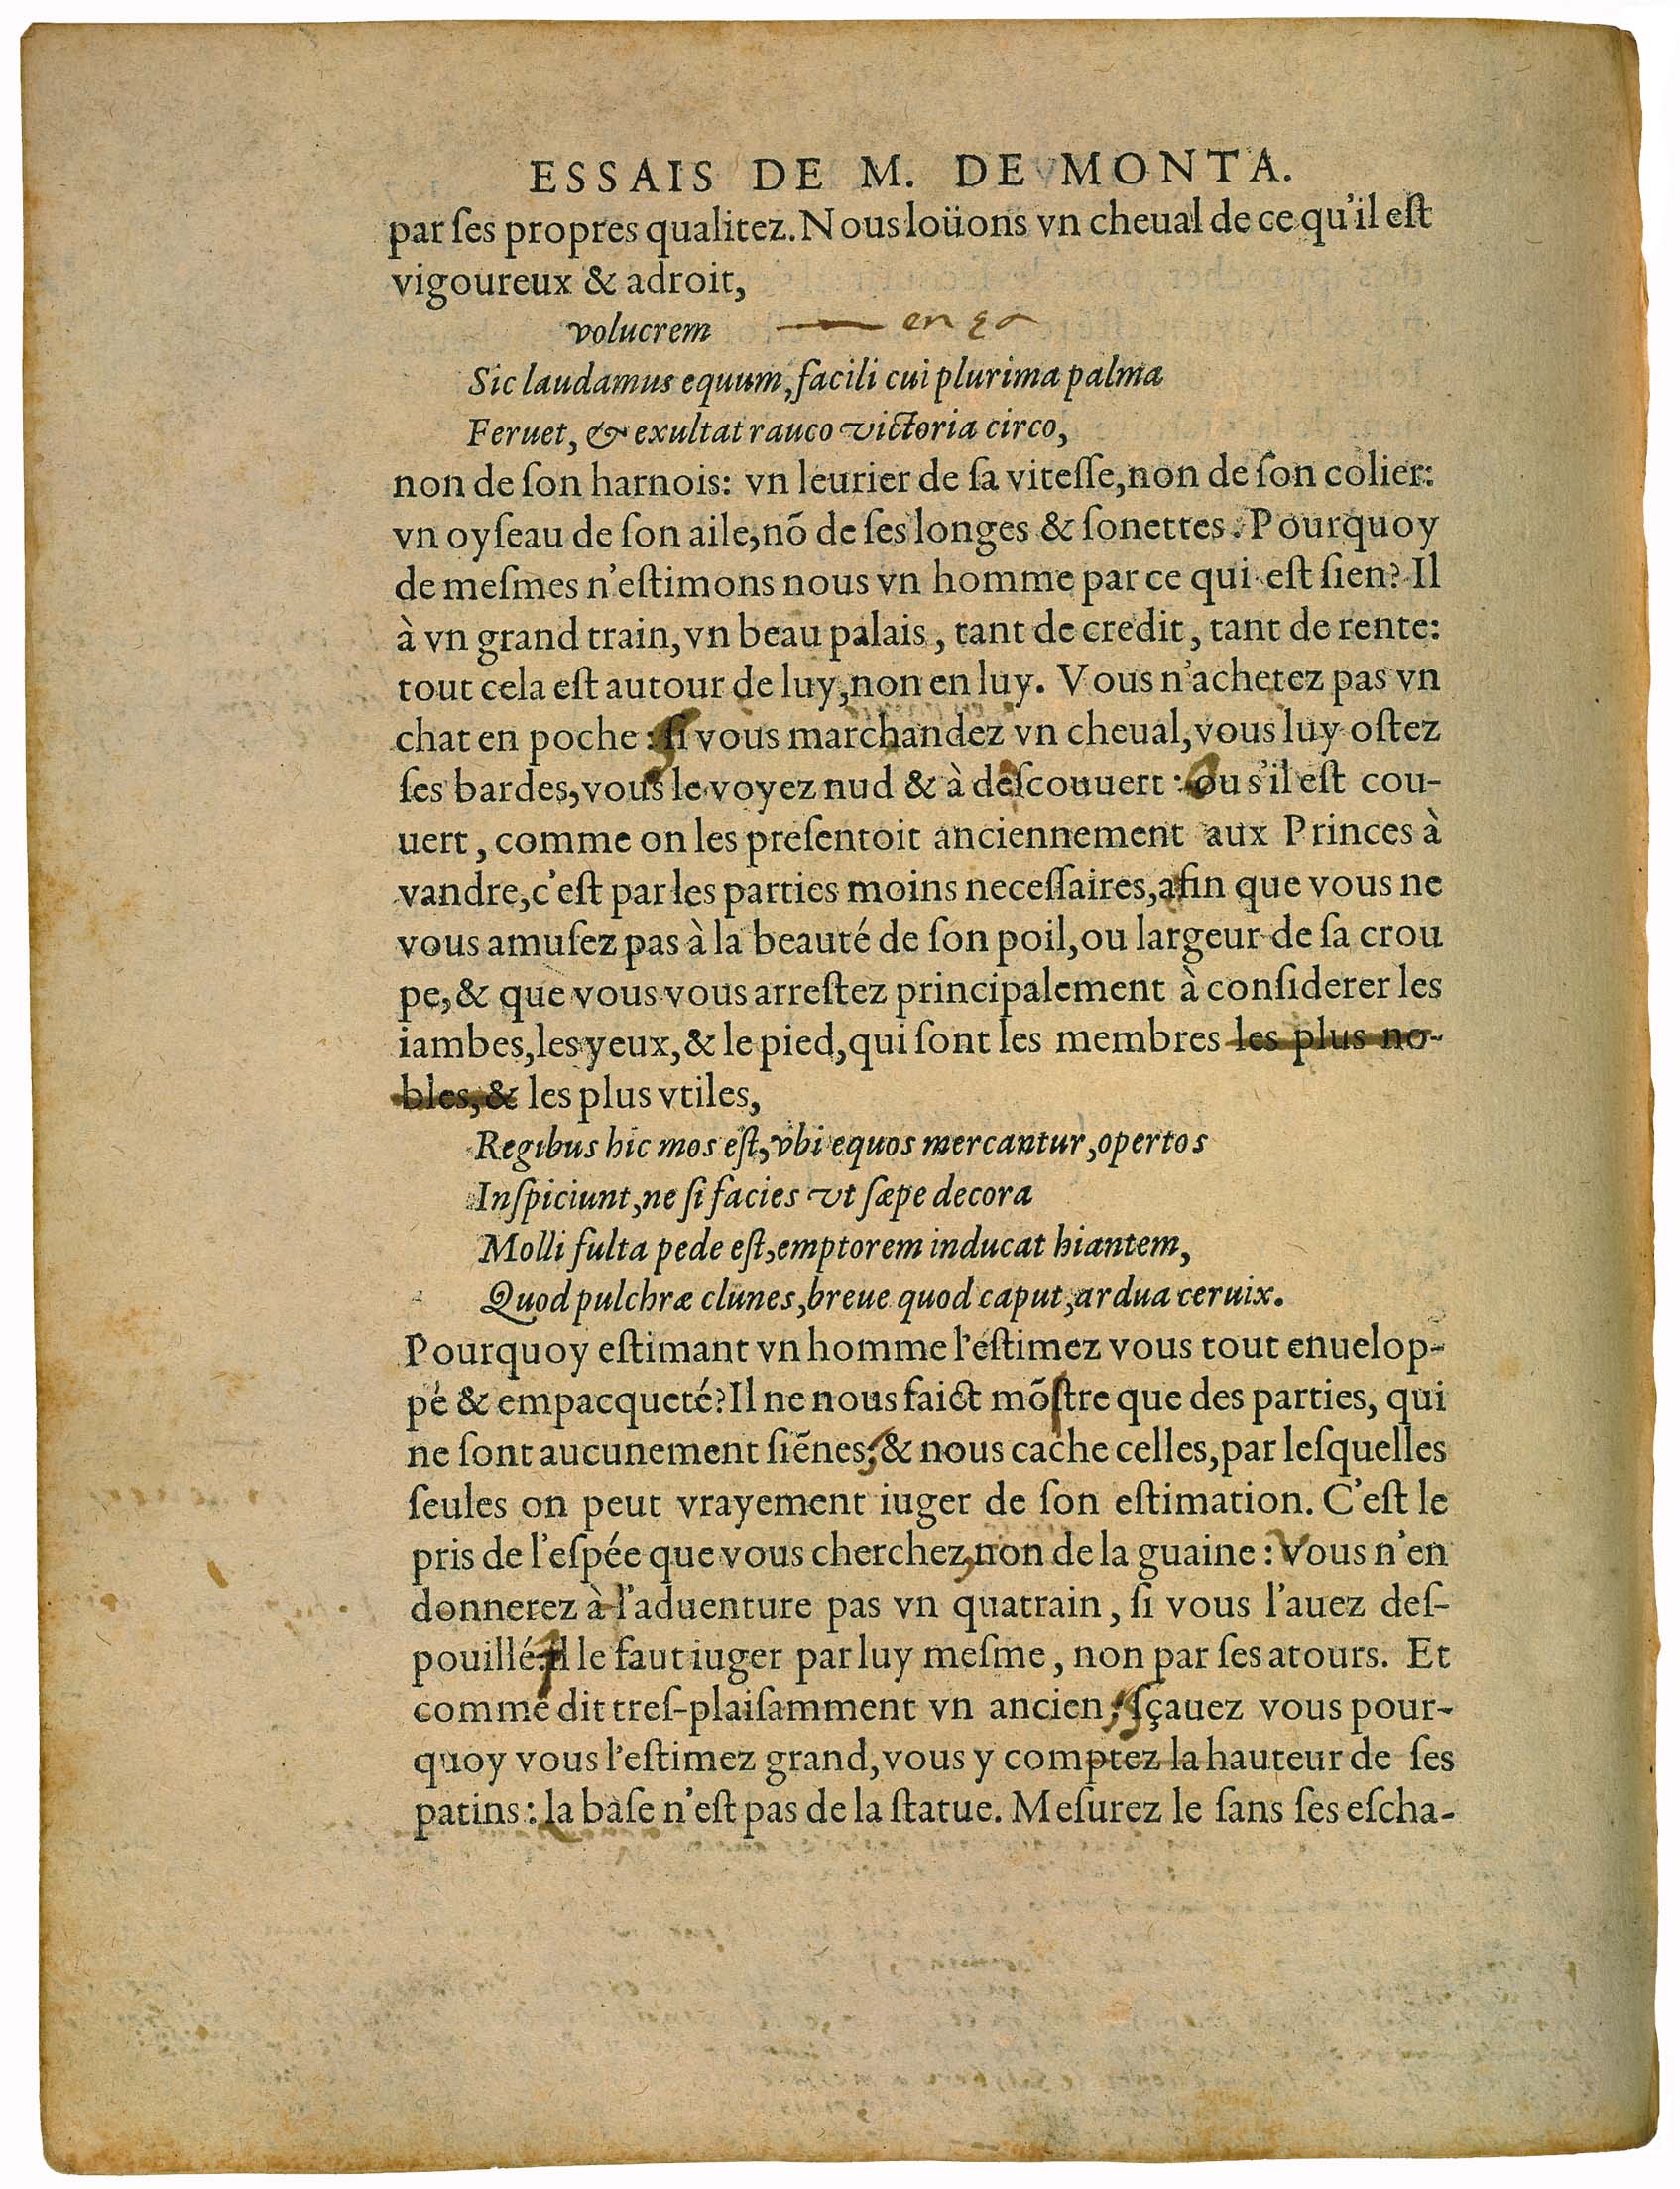 ESSAIS DE M. DE MONTA.
par ſes propres qualitez. Nous loüons vn cheual de ce qu'il eſt
vigoureux & adroit,
volucrem
Sic laudamus equum, facili cui plurima palma
Feruet, & exultat rauco victoria circo,
non de ſon harnois: vn leurier de ſa viteſſe, non de ſon colier:
vn oyſeau de ſon aile, nō de ſes longes & ſonettes. Pourquoy
de meſmes n'eſtimons nous vn homme par ce qui eſt ſien? Il
à vn grand train, vn beau palais, tant de credit, tant de rente:
tout cela eſt autour de luy, non en luy. Vous n'achetez pas vn
chat en poche: ſi vous marchandez vn cheual, vous luy oſtez
ſes bardes, vous le voyez nud & à deſcouuert: ou s'il eſt cou-
uert, comme on les preſentoit anciennement aux Princes à
vandre, c'eſt par les parties moins neceſſaires, afin que vous ne
vous amuſez pas à la beauté de ſon poil, ou largeur de ſa crou
pe, & que vous vous arreſtez principalement à conſiderer les
iambes, les yeux, & le pied, qui ſont les membres les plus no-
bles, & les plus vtiles,
Regibus hic mos eſt, vbi equos mercantur, opertos
Inſpiciunt, ne ſi facies vt ſæpe decora
Molli fulta pede eſt, emptorem inducat hiantem,
Quod pulchræ clunes, breue quod caput, ardua ceruix.
Pourquoy eſtimant vn homme l'eſtimez vous tout enuelop-
pé & empacqueté? Il ne nous faict mōſtre que des parties, qui
ne ſont aucunement ſiēnes: & nous cache celles, par leſquelles
ſeules on peut vrayement iuger de ſon eſtimation. C'eſt le
pris de l'eſpée que vous cherchez, non de la guaine: Vous n'en
donnerez à l'aduenture pas vn quatrain, ſi vous l'auez deſ-
pouillé: il le faut iuger par luy meſme, non par ſes atours. Et
comme dit treſ-plaiſamment vn ancien, ſçauez vous pour-
quoy vous l'eſtimez grand, vous y comptez la hauteur de ſes
patins: la baſe n'eſt pas de la ſtatue. Meſurez le ſans ſes eſcha-